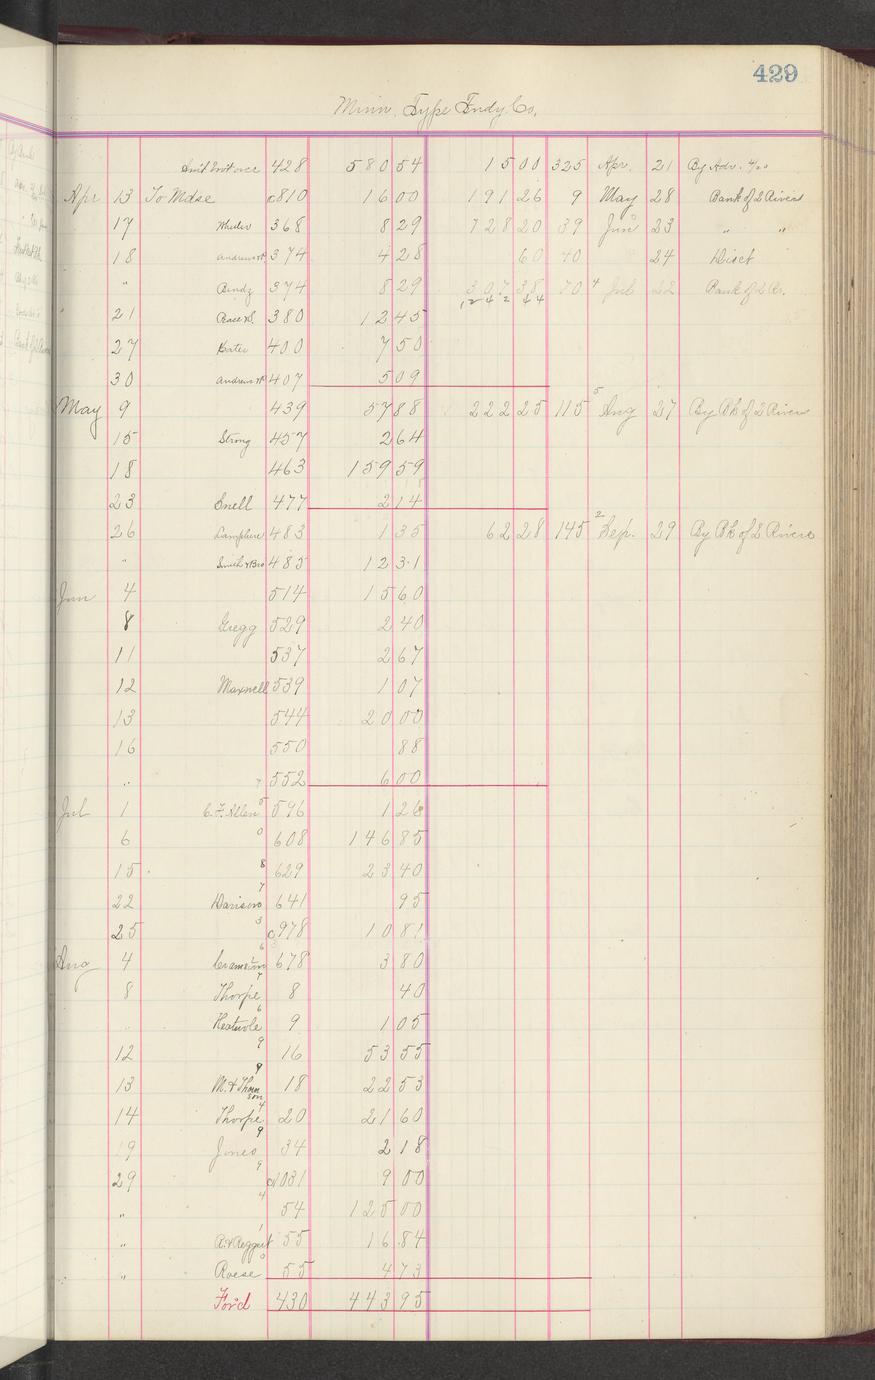 429
Minn. Type Fndy. Co.
Amt brot over 428 580 54 15 00 325 Apr. 21 By Adv. 4/20
Apr 13 To Mdse c810 16 00 191 26 9 May 28 Bank of 2 Rivers
17 Wheeler 368 8 29 728 20 39 Jun 23 " "
18 Andrews 374 4 28 60 40 24 Disct
" Bendz 374 8 29 307 38 70 4 Jul 22 Bank of 2 Rs.
21 380 12 45
27 400 7 50
30 Andrews 407 5 09
May 9 439 57 88 222 25 115 5 Aug 27 By Bk of 2 Rivers
15 Strong 457 2 64
18 463 159 59
23 Snell 477 2 14
26 Lamphere 483 1 35 62 28 145 2 Sep. 29 By Bk of 2 Rivers
" Smith & Bro 485 12 31
Jun 4 514 15 60
8 Gregg 529 2 40
11 537 2 67
12 Maxwell 539 1 07
13 544 20 00
16 550 88
" 7 552 6 00
Jul 1 C. F. Allen 5 596 1 26
6 0 608 146 85
15 8 629 23 40
22 Davison 7 641 95
25 3 c978 10 81
Aug 4 6 678 3 80
8 Thorpe 7 8 40
" Heatwole 6 9 1 05
12 9 16 53 55
13 M. & Thomson 9 18 22 53
14 Thorpe 4 20 21 60
19 Jones 9 34 2 18
29 9 c1031 9 00
" 4 54 125 00
" 1 55 16 84
" Roese 0 55 4 73
For'd 430 443 95